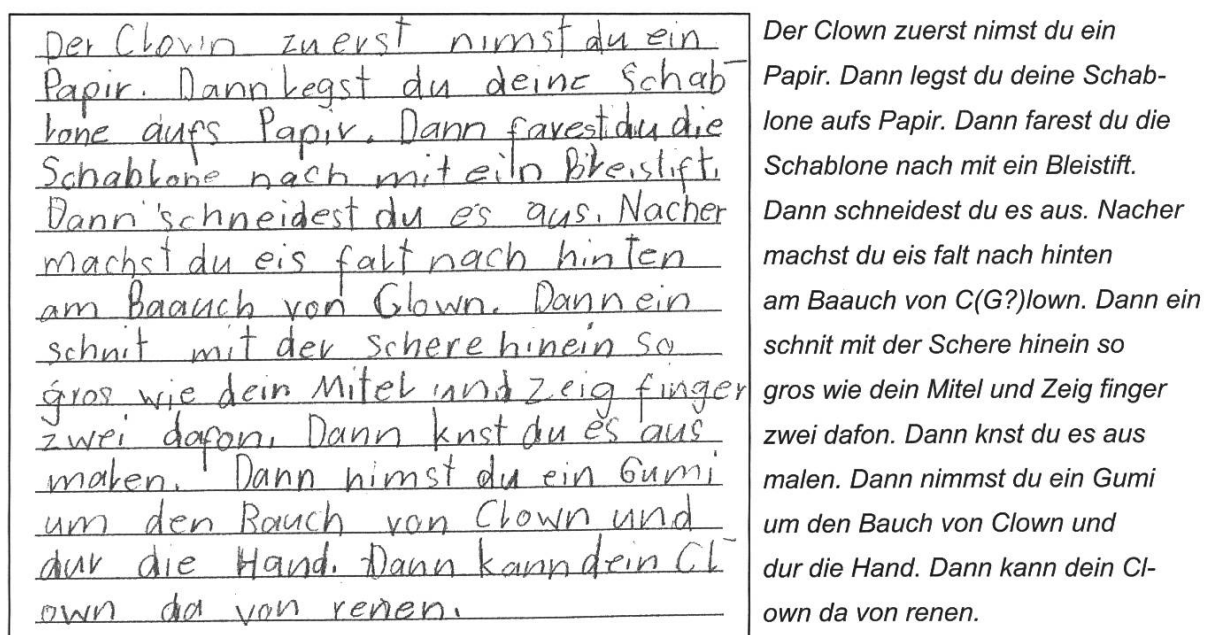 Der Clown zuerst nimst du ein
Papir. Dann legst du deine Schab-
lone aufs Papir. Dann farest du die
Schablone nach mit ein Bleistift.
Dann schneidest du es aus. Nacher
machst du eis falt nach hinten
am Baauch von Clown. Dann ein
schnit mit der Schere hinein so
gros wie dein Mitel und Zeig finger
zwei dafon. Dann knst du es aus
malen. Dann nimst du ein Gumi
um den Bauch von Clown und
dur die Hand. Dann kann dein Cl-
own da von renen.
Der Clown zuerst nimst du ein
Papir. Dann legst du deine Schab-
lone aufs Papir. Dann farest du die
Schablone nach mit ein Bleistift.
Dann schneidest du es aus. Nacher
machst du eis falt nach hinten
am Baauch von C(G?)lown. Dann ein
schnit mit der Schere hinein so
gros wie dein Mitel und Zeig finger
zwei dafon. Dann knst du es aus
malen. Dann nimmst du ein Gumi
um den Bauch von Clown und
dur die Hand. Dann kann dein Cl-
own da von renen.